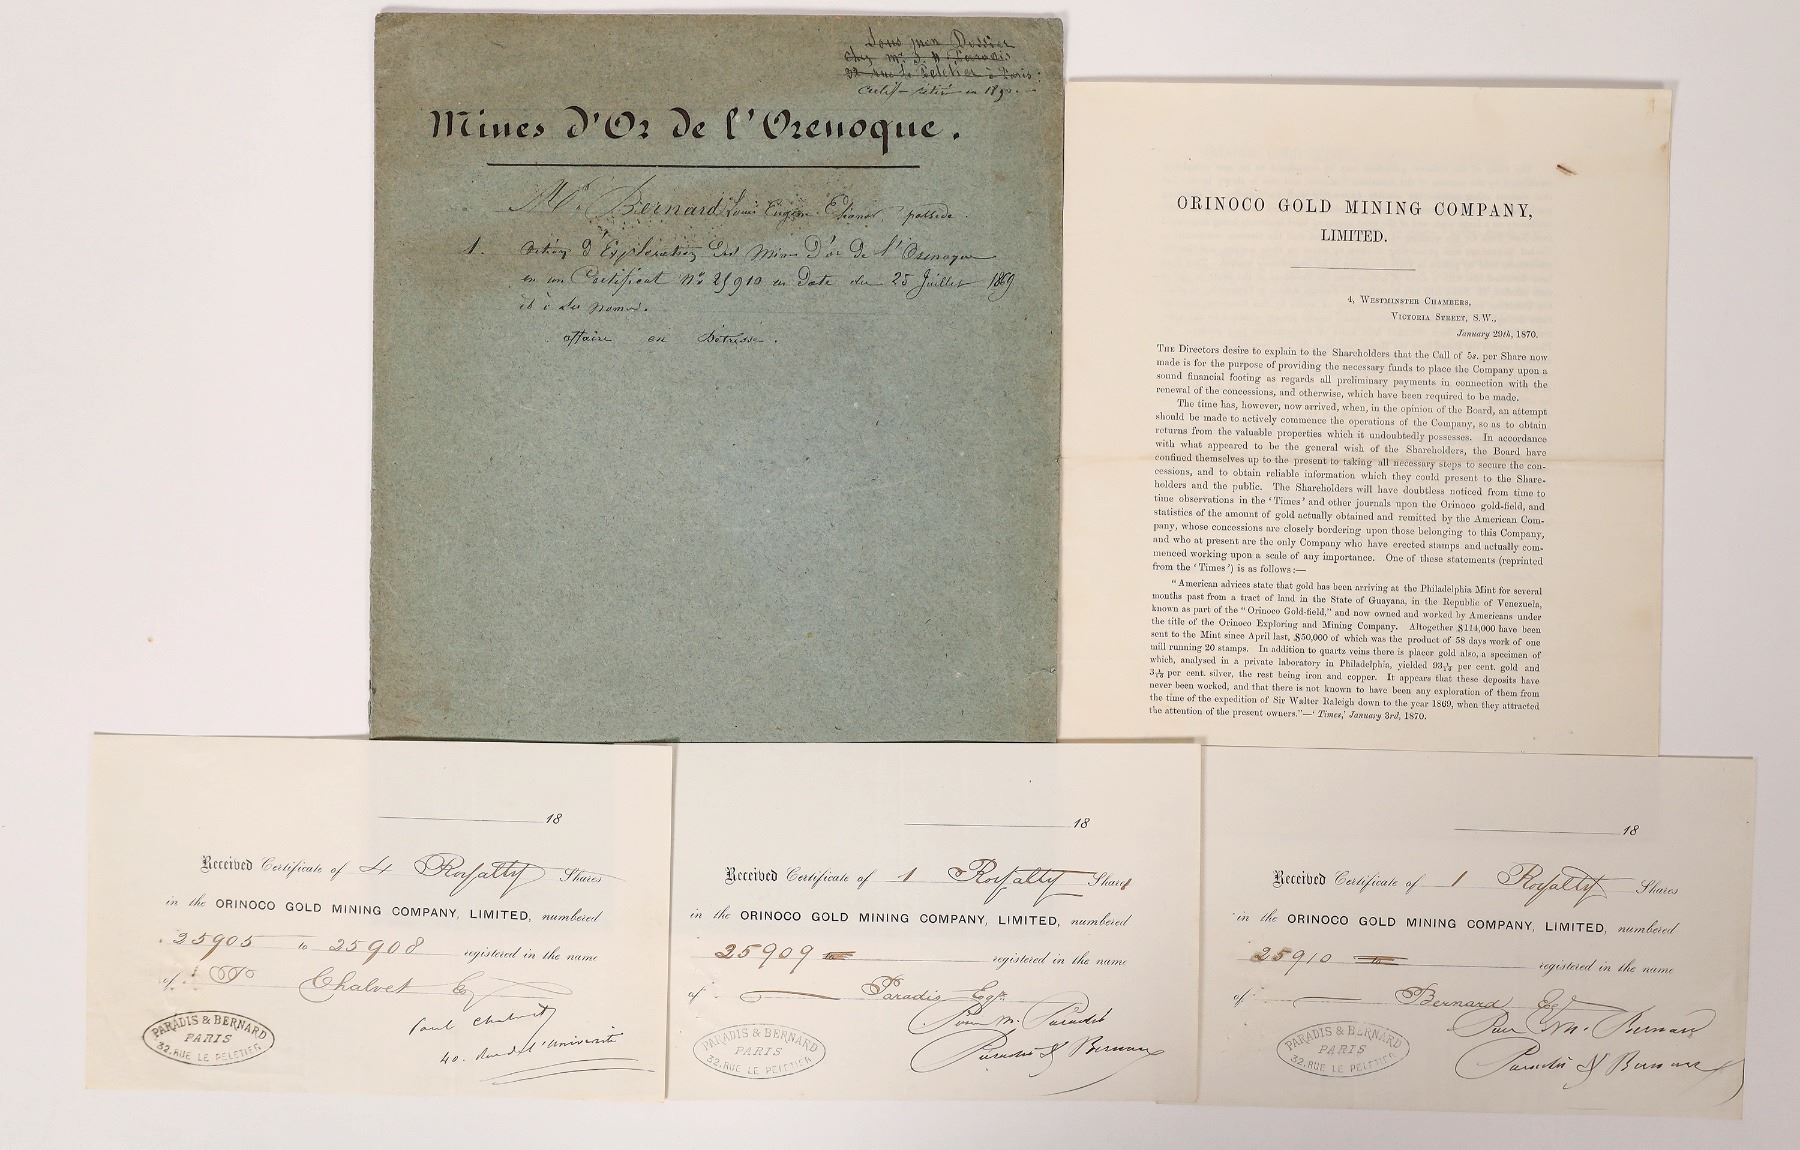 Sous mon Dossier
chez Mr. J. Paradis
32 rue Le Peletier à Paris
retiré en 1890.
Mines d'Or de l'Orenoque.
Mr. Bernard Louis Eugène possède
1. action d'Exploration des Mines D'or de l'Orenoque
en un Certificat No 25910 en Date du 25 Juillet 1869
affaire en Détresse.
ORINOCO GOLD MINING COMPANY,
LIMITED.
4, Westminster Chambers,
Victoria Street, S.W.,
January 29th, 1870.
The Directors desire to explain to the Shareholders that the Call of 5s. per Share now
made is for the purpose of providing the necessary funds to place the Company upon a
sound financial footing as regards all preliminary payments in connection with the
renewal of the concessions, and otherwise, which have been required to be made.
The time has, however, now arrived, when, in the opinion of the Board, an attempt
should be made to actively commence the operations of the Company, so as to obtain
returns from the valuable properties which it undoubtedly possesses. In accordance
with what appeared to be the general wish of the Shareholders, the Board have
confined themselves up to the present to taking all necessary steps to secure the con-
cessions, and to obtain reliable information which they could present to the Share-
holders and the public. The Shareholders will have doubtless noticed from time to
time observations in the 'Times' and other journals upon the Orinoco gold-field, and
statistics of the amount of gold actually obtained and remitted by the American Com-
pany, whose concessions are closely bordering upon those belonging to this Company,
and who at present are the only Company who have erected stamps and actually com-
menced working upon a scale of any importance. One of these statements (reprinted
from the 'Times') is as follows:—
"American advices state that gold has been arriving at the Philadelphia Mint for several
months past from a tract of land in the State of Guayana, in the Republic of Venezuela,
known as part of the "Orinoco Gold-field," and now owned and worked by Americans under
the title of the Orinoco Exploring and Mining Company. Altogether $114,000 have been
sent to the Mint since April last, $50,000 of which was the product of 58 days work of one
mill running 20 stamps. In addition to quartz veins there is placer gold also, a specimen of
which, analysed in a private laboratory in Philadelphia, yielded per cent. gold and
per cent. silver, the rest being iron and copper. It appears that these deposits have
never been worked, and that there is not known to have been any exploration of them from
the time of the expedition of Sir Walter Raleigh down to the year 1869, when they attracted
the attention of the present owners."—'Times,' January 3rd, 1870.
18
Received Certificate of 4 Royalty Shares
in the ORINOCO GOLD MINING COMPANY, LIMITED, numbered
25905 to 25908 registered in the name
of P. Chalvet Esq
Paul Chalvet
40. Rue de l'Université
PARADIS & BERNARD
PARIS
32, RUE LE PELETIER
18
Received Certificate of 1 Royalty Share
in the ORINOCO GOLD MINING COMPANY, LIMITED, numbered
25909 to registered in the name
of Paradis Esqre
Pour M. Paradis
Paradis & Bernard
PARADIS & BERNARD
PARIS
32, RUE LE PELETIER
18
Received Certificate of 1 Royalty Shares
in the ORINOCO GOLD MINING COMPANY, LIMITED, numbered
25910 to registered in the name
of Bernard Esq
Pour M. Bernard
Paradis & Bernard
PARADIS & BERNARD
PARIS
32, RUE LE PELETIER